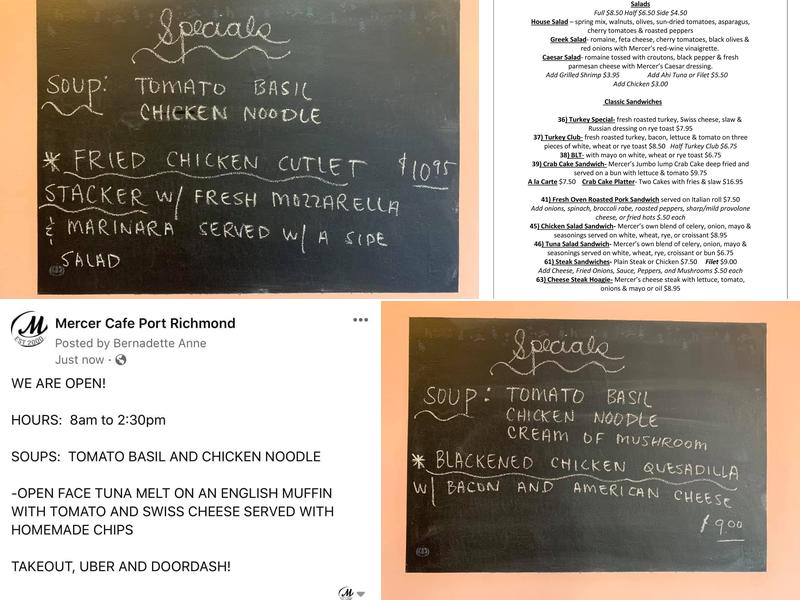 Specials
SOUP: TOMATO BASIL
CHICKEN NOODLE
* FRIED CHICKEN CUTLET $10.95
STACKER W/ FRESH MOZZARELLA
& MARINARA SERVED W/ A SIDE
SALAD
Salads
Full $8.50 Half $6.50 Side $4.50
House Salad – spring mix, walnuts, olives, sun-dried tomatoes, asparagus,
cherry tomatoes & roasted peppers
Greek Salad- romaine, feta cheese, cherry tomatoes, black olives &
red onions with Mercer's red-wine vinaigrette.
Caesar Salad- romaine tossed with croutons, black pepper & fresh
parmesan cheese with Mercer's Caesar dressing.
Add Grilled Shrimp $3.95 Add Ahi Tuna or Filet $5.50
Add Chicken $3.00
Classic Sandwiches
36) Turkey Special- fresh roasted turkey, Swiss cheese, slaw &
Russian dressing on rye toast $7.95
37) Turkey Club- fresh roasted turkey, bacon, lettuce & tomato on three
pieces of white, wheat or rye toast $8.50 Half Turkey Club $6.75
38) BLT- with mayo on white, wheat or rye toast $6.75
39) Crab Cake Sandwich- Mercer's Jumbo lump Crab Cake deep fried and
served on a bun with lettuce & tomato $9.75
A la Carte $7.50 Crab Cake Platter- Two Cakes with fries & slaw $16.95
41) Fresh Oven Roasted Pork Sandwich served on Italian roll $7.50
Add onions, spinach, broccoli rabe, roasted peppers, sharp/mild provolone
cheese, or fried hots $.50 each
45) Chicken Salad Sandwich- Mercer's own blend of celery, onion, mayo &
seasonings served on white, wheat, rye, or croissant $8.95
46) Tuna Salad Sandwich- Mercer's own blend of celery, onion, mayo &
seasonings served on white, wheat, rye, croissant or bun $6.75
61) Steak Sandwiches- Plain Steak or Chicken $7.50 Filet $9.00
Add Cheese, Fried Onions, Sauce, Peppers, and Mushrooms $.50 each
63) Cheese Steak Hoagie- Mercer's cheese steak with lettuce, tomato,
onions & mayo or oil $8.95
M
EST 2000
Mercer Cafe Port Richmond
Posted by Bernadette Anne
Just now ·
WE ARE OPEN!
HOURS: 8am to 2:30pm
SOUPS: TOMATO BASIL AND CHICKEN NOODLE
-OPEN FACE TUNA MELT ON AN ENGLISH MUFFIN
WITH TOMATO AND SWISS CHEESE SERVED WITH
HOMEMADE CHIPS
TAKEOUT, UBER AND DOORDASH!
Specials
SOUP: TOMATO BASIL
CHICKEN NOODLE
CREAM OF MUSHROOM
* BLACKENED CHICKEN QUESADILLA
W/ BACON AND AMERICAN CHEESE
$9.00